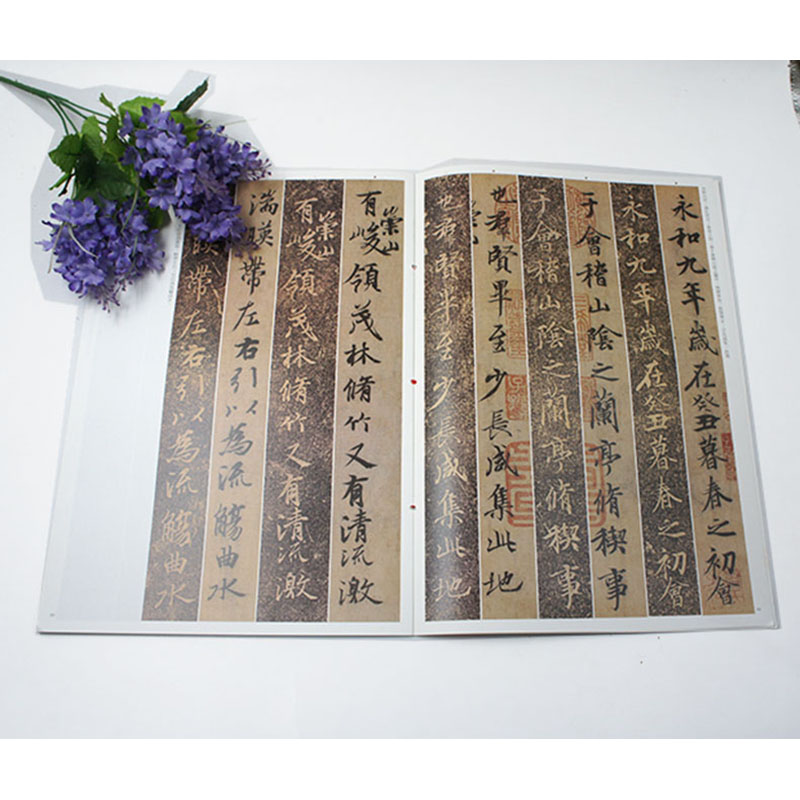 永和九年歲在癸丑暮春之初會
永和九年歲在癸丑暮春之初會
于會稽山陰之蘭亭脩稧事
于會稽山陰之蘭亭脩稧事
也羣賢畢至少長咸集此地
也羣賢畢至少長咸集此地
有崇山峻領茂林脩竹又有清流激
有崇山峻領茂林脩竹又有清流激
湍暎帶左右引以為流觴曲水
暎帶左右引以為流觴曲水